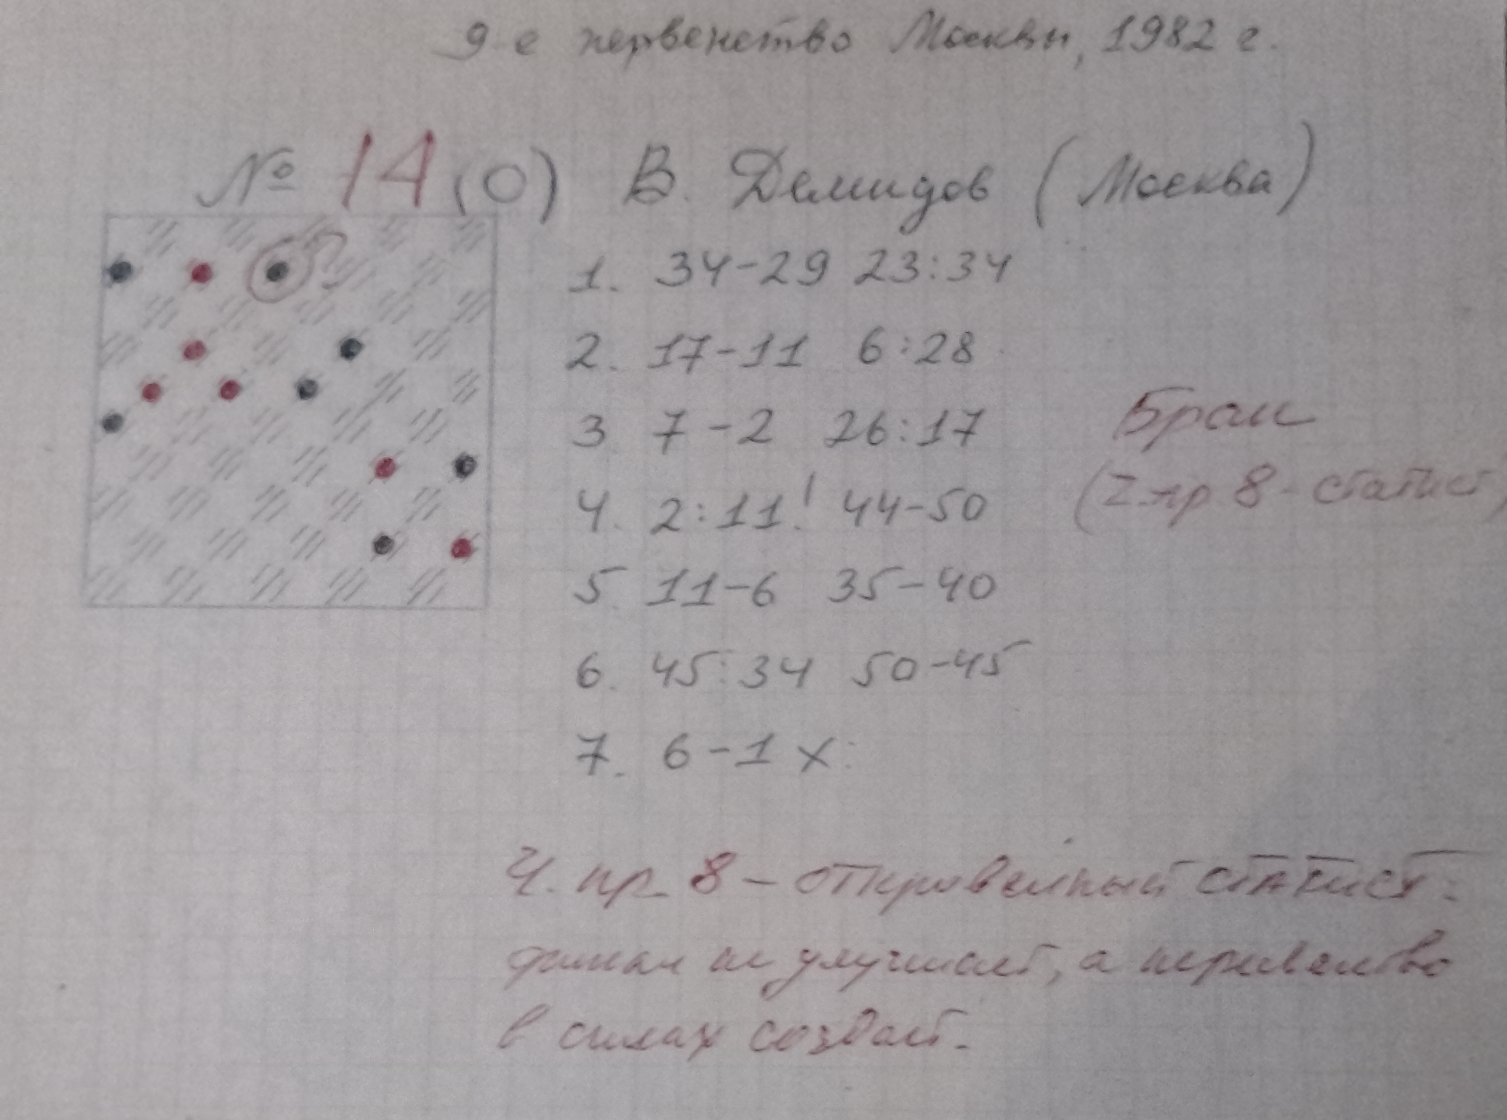 9-е первенство Москвы, 1982 г.
№ 14 (0) В. Демидов (Москва)
1. 34-29 23:34
2. 17-11 6:28
3 7-2 26:17
4. 2:11! 44-50
5. 11-6 35-40
6. 45:34 50-45
7. 6-1 X.
?
(2 пр 8 - статист)
Ч. пр. 8 - откровенный статист:
финал не улучшает, а неравенство
в силах создает.